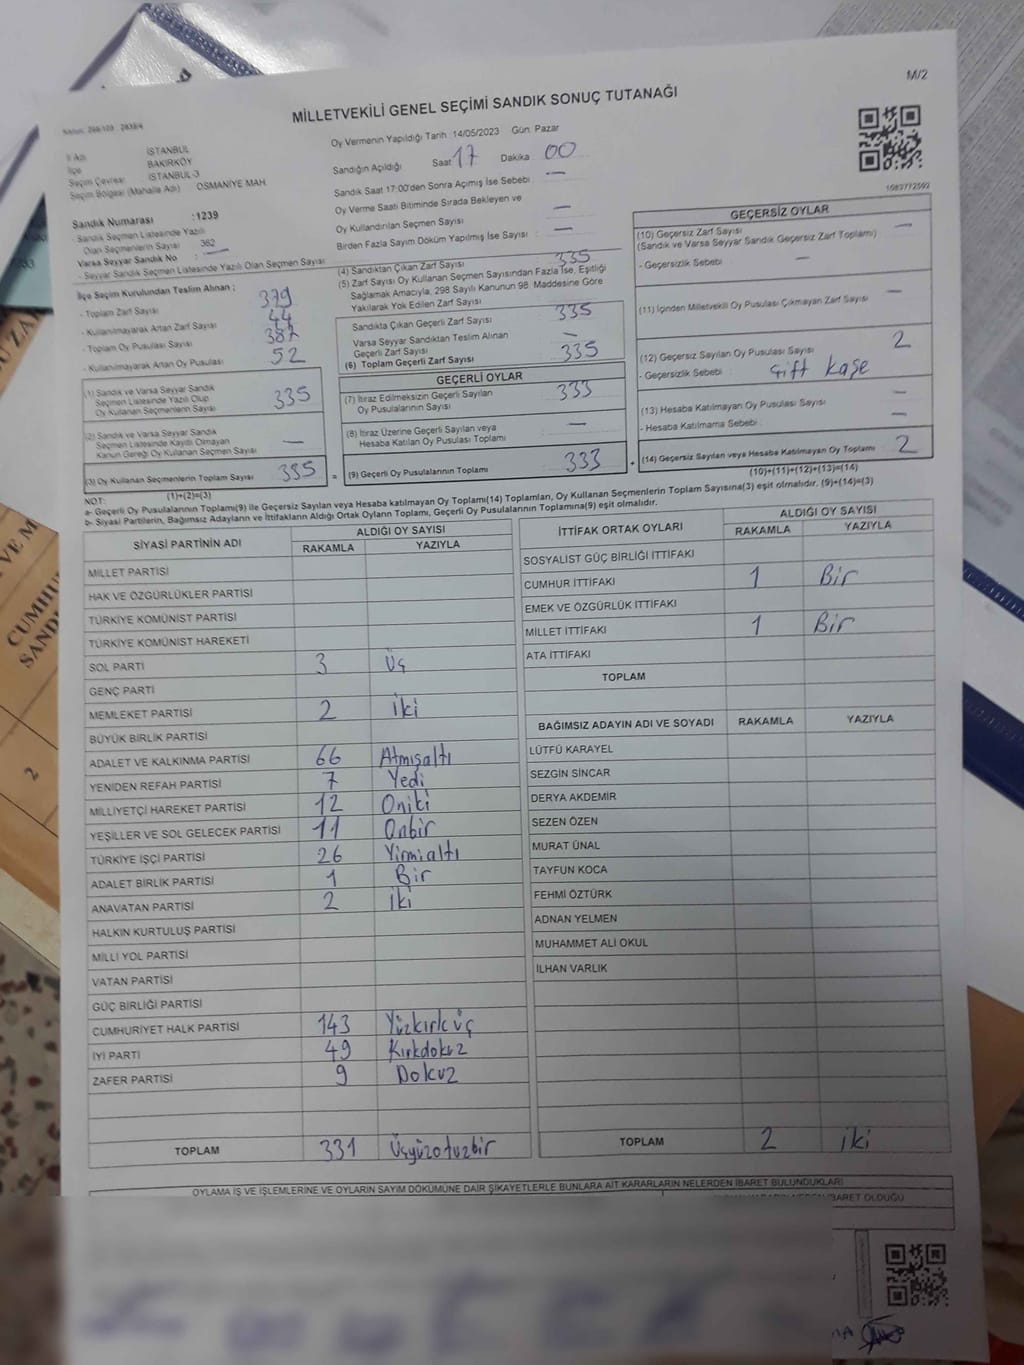 M/2
MİLLETVEKİLİ GENEL SEÇİMİ SANDIK SONUÇ TUTANAĞI
İl Adı İSTANBUL
İlçe BAKIRKÖY
Seçim Çevresi İSTANBUL-3
Seçim Bölgesi (Mahalle Adı) OSMANİYE MAH.
Sandık Numarası :1239
- Sandık Seçmen Listesinde Yazılı
Olan Seçmenlerin Sayısı 362
Varsa Seyyar Sandık No : —
- Seyyar Sandık Seçmen Listesinde Yazılı Olan Seçmen Sayısı
Oy Vermenin Yapıldığı Tarih :14/05/2023 Gün. Pazar
Sandığın Açıldığı Saat 17 Dakika 00
Sandık Saat 17:00'den Sonra Açımış İse Sebebi : —
Oy Verme Saati Bitiminde Sırada Bekleyen ve
Oy Kullandırılan Seçmen Sayısı : —
Birden Fazla Sayım Döküm Yapılmış İse Sayısı : —
1083772592
İlçe Seçim Kurulundan Teslim Alınan ;
- Toplam Zarf Sayısı 379
- Kullanılmayarak Artan Zarf Sayısı 44
- Toplam Oy Pusulası Sayısı 387
- Kullanılmayarak Artan Oy Pusulası 52
(1) Sandık ve Varsa Seyyar Sandık
Seçmen Listesinde Yazılı Olup
Oy Kullanan Seçmenlerin Sayısı 335
(2) Sandık ve Varsa Seyyar Sandık
Seçmen Listesinde Kayıtlı Olmayan
Kanun Gereği Oy Kullanan Seçmen Sayısı —
(3) Oy Kullanan Seçmenlerin Toplam Sayısı 335
(1)+(2)=(3)
(4) Sandıktan Çıkan Zarf Sayısı 335
(5) Zarf Sayısı Oy Kullanan Seçmen Sayısından Fazla İse, Eşitliği
Sağlamak Amacıyla, 298 Sayılı Kanunun 98. Maddesine Göre
Yakılarak Yok Edilen Zarf Sayısı
Sandıkta Çıkan Geçerli Zarf Sayısı 335
Varsa Seyyar Sandıktan Teslim Alınan
Geçerli Zarf Sayısı —
(6) Toplam Geçerli Zarf Sayısı 335
GEÇERLİ OYLAR
(7) İtiraz Edilmeksizin Geçerli Sayılan
Oy Pusulalarının Sayısı 333
(8) İtiraz Üzerine Geçerli Sayılan veya
Hesaba Katılan Oy Pusulası Toplamı —
= (9) Geçerli Oy Pusulalarının Toplamı 333
GEÇERSİZ OYLAR
(10) Geçersiz Zarf Sayısı —
(Sandık ve Varsa Seyyar Sandık Geçersiz Zarf Toplamı)
- Geçersizlik Sebebi : —
(11) İçinden Milletvekili Oy Pusulası Çıkmayan Zarf Sayısı —
(12) Geçersiz Sayılan Oy Pusulası Sayısı 2
- Geçersizlik Sebebi : Çift kaşe
(13) Hesaba Katılmayan Oy Pusulası Sayısı —
- Hesaba Katılmama Sebebi : —
+ (14) Geçersiz Sayılan veya Hesaba Katılmayan Oy Toplamı 2
(10)+(11)+(12)+(13)=(14)
NOT:
a- Geçerli Oy Pusulalarının Toplamı(9) ile Geçersiz Sayılan veya Hesaba katılmayan Oy Toplamı(14) Toplamları, Oy Kullanan Seçmenlerin Toplam Sayısına(3) eşit olmalıdır. (9)+(14)=(3)
b- Siyasi Partilerin, Bağımsız Adayların ve İttifakların Aldığı Ortak Oyların Toplamı, Geçerli Oy Pusulalarının Toplamına(9) eşit olmalıdır.
SİYASİ PARTİNİN ADI ALDIĞI OY SAYISI
RAKAMLA YAZIYLA
MİLLET PARTİSİ
HAK VE ÖZGÜRLÜKLER PARTİSİ
TÜRKİYE KOMÜNİST PARTİSİ
TÜRKİYE KOMÜNİST HAREKETİ
SOL PARTİ 3 Üç
GENÇ PARTİ
MEMLEKET PARTİSİ 2 iki
BÜYÜK BİRLİK PARTİSİ
ADALET VE KALKINMA PARTİSİ 66 Atmışaltı
YENİDEN REFAH PARTİSİ 7 Yedi
MİLLİYETÇİ HAREKET PARTİSİ 12 Oniki
YEŞİLLER VE SOL GELECEK PARTİSİ 11 Onbir
TÜRKİYE İŞÇİ PARTİSİ 26 Yirmialtı
ADALET BİRLİK PARTİSİ 1 Bir
ANAVATAN PARTİSİ 2 iki
HALKIN KURTULUŞ PARTİSİ
MİLLİ YOL PARTİSİ
VATAN PARTİSİ
GÜÇ BİRLİĞİ PARTİSİ
CUMHURİYET HALK PARTİSİ 143 Yüzkırk üç
İYİ PARTİ 49 Kırkdokuz
ZAFER PARTİSİ 9 Dokuz
TOPLAM 331 Üçyüzotuzbir
İTTİFAK ORTAK OYLARI ALDIĞI OY SAYISI
RAKAMLA YAZIYLA
SOSYALİST GÜÇ BİRLİĞİ İTTİFAKI
CUMHUR İTTİFAKI 1 Bir
EMEK VE ÖZGÜRLÜK İTTİFAKI
MİLLET İTTİFAKI 1 Bir
ATA İTTİFAKI
TOPLAM
BAĞIMSIZ ADAYIN ADI VE SOYADI RAKAMLA YAZIYLA
LÜTFÜ KARAYEL
SEZGİN SİNCAR
DERYA AKDEMİR
SEZEN ÖZEN
MURAT ÜNAL
TAYFUN KOCA
FEHMİ ÖZTÜRK
ADNAN YELMEN
MUHAMMET ALİ OKUL
İLHAN VARLIK
TOPLAM 2 iki
OYLAMA İŞ VE İŞLEMLERİNE VE OYLARIN SAYIM DÖKÜMÜNE DAİR ŞİKAYETLERLE BUNLARA AİT KARARLARIN NELERDEN İBARET BULUNDUKLARI
BARET OLDUĞU
CUMHU
SANDI
VE M
2